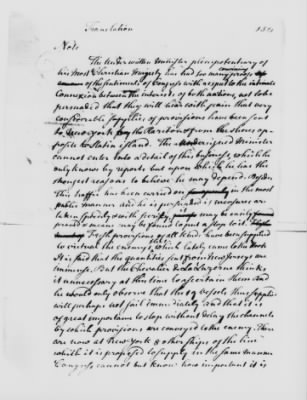 Translation
Note
The Underwritten Minister plenipotentiary of
his Most Christian Majesty has had too many convincing proofs
of the sentiments of Congress with respect to the intimate
Connexion between the interests of both nations, not to be
persuaded that they will hear with pain that very
considerable supplies of provisions have been sent
to New york from the
opposite to Staten island. The Minister
cannot enter into a detail of this business, which he
only knows by report but upon which he has the
strongest reasons to believe he may depend.
This traffic has been carried on in the most
public manner and he is persuaded is measures are
taken
means may be found to put a stop to it.
Fresh provisions of all kind have been supplied
to victual the enemy's which lately came to the
It is said that the quantities sent from New jersey are
immense. But the Chevalier de la Luzerne thinks
it unnecessary at this time to ascertain them and
he would only observe that the supplies
will perhaps not fail immediately and that it is
of great importance to stop without delay the channels
by which provisions are conveyed to the enemy. There
are now at New York other ships of the line
which it is proposed to supply in the same manner
Congress cannot but know how important it is